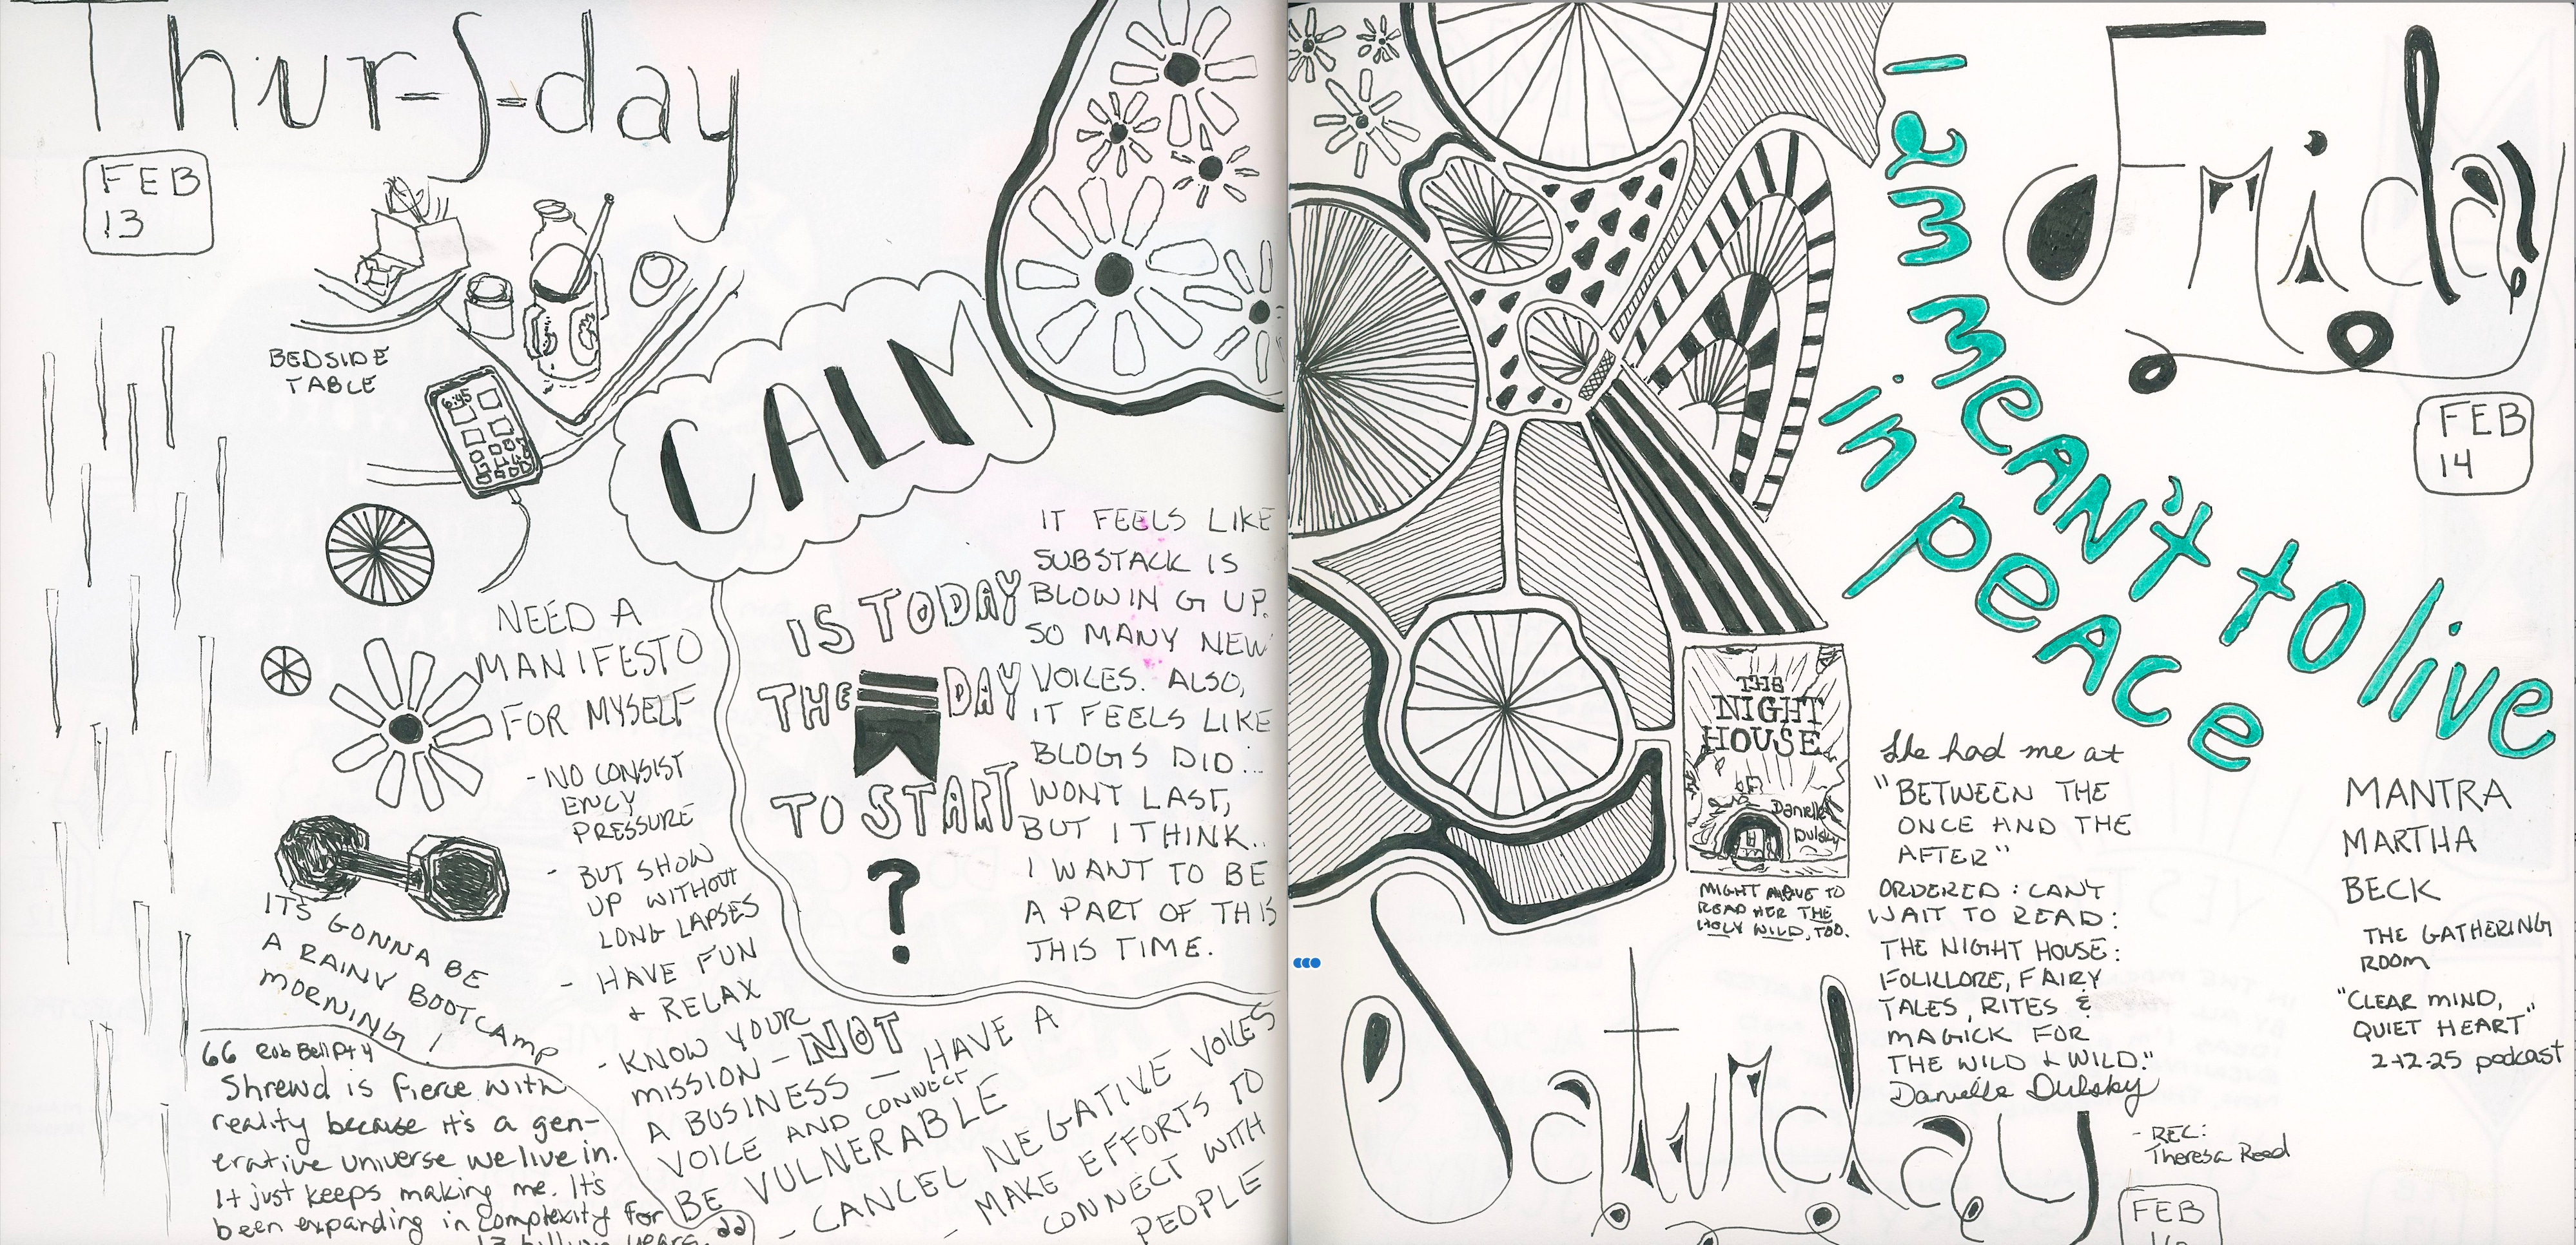 Thur-S-day
FEB
13
BEDSIDE
TABLE
6:45
CALM
NEED A
MANIFESTO
FOR MYSELF
- NO CONSIST
ENCY
PRESSURE
- BUT SHOW
UP WITHOUT
LONG LAPSES
- HAVE FUN
+ RELAX
- KNOW YOUR
MISSION - NOT
A BUSINESS - HAVE A
VOICE AND CONNECT
BE VULNERABLE
- CANCEL NEGATIVE VOICES
- MAKE EFFORTS TO
CONNECT WITH
PEOPLE
ITS GONNA BE
A RAINY BOOTCAMP
MORNING!
66 Rob Bell Pt 4
Shrewd is fierce with
reality because it's a gen-
erative universe we live in.
It just keeps making me. It's
been expanding in complexity for
13 billion years.
IS TODAY
THE DAY
TO START
?
IT FEELS LIKE
SUBSTACK IS
BLOWING UP.
SO MANY NEW
VOICES. ALSO,
IT FEELS LIKE
BLOGS DID...
WONT LAST,
BUT I THINK..
I WANT TO BE
A PART OF THIS
THIS TIME.
Friday
FEB
14
I am meant to live
in peace
MANTRA
MARTHA
BECK
THE GATHERING
ROOM
"CLEAR MIND,
QUIET HEART"
2-12-25 podcast
THE
NIGHT
HOUSE
Danielle
Dulsky
MIGHT HAVE TO
READ HER THE
HOLY WILD, TOO.
She had me at
"BETWEEN THE
ONCE AND THE
AFTER"
ORDERED: CANT
WAIT TO READ:
THE NIGHT HOUSE:
FOLKLORE, FAIRY
TALES, RITES &
MAGICK FOR
THE WILD + WILD."
Danielle Dulsky
- REC:
Theresa Reed
Saturday
FEB